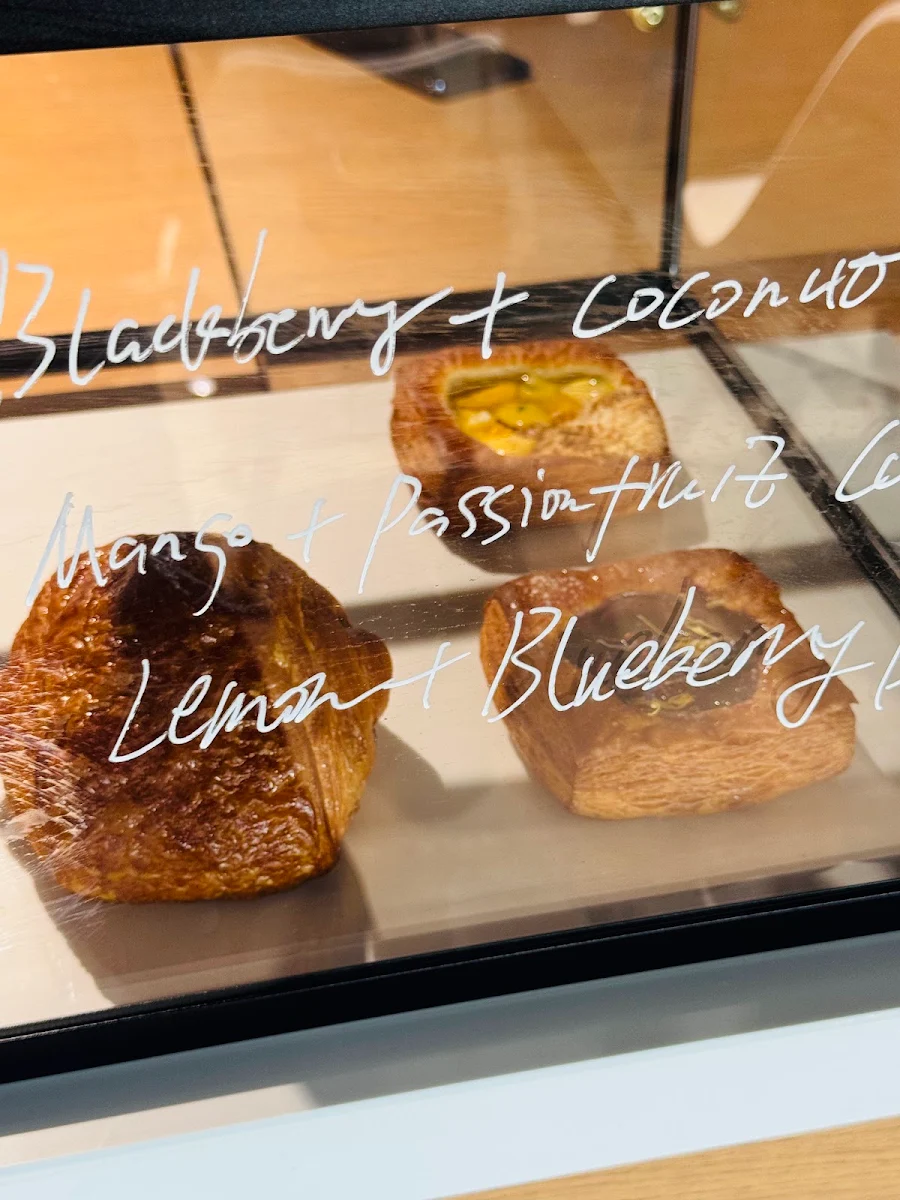 Blackberry + Coconut
Mango + Passionfruit
Lemon + Blueberry